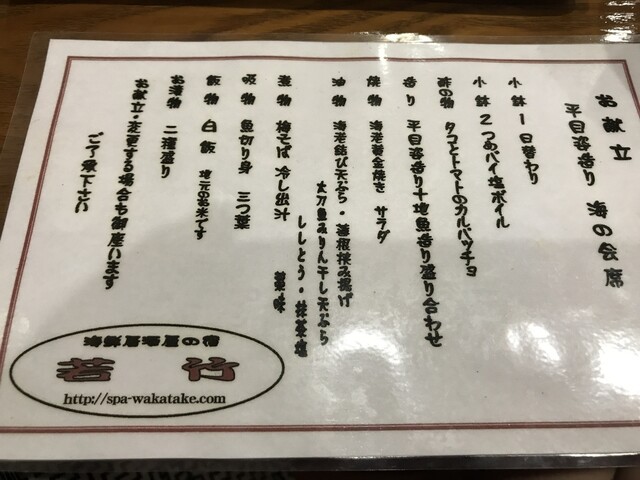 お献立
平目姿造り 海の会席
小鉢1 日替わり
小鉢2 つめバイ塩ボイル
酢の物 タコとトマトのカルパッチョ
造り 平目姿造り十地魚造り盛り合わせ
焼物 海老黄金焼き サラダ
油物 海老結び天ぷら・蓮根挟み揚げ
太刀魚みりん干し天ぷら
ししとう・抹茶塩
煮物 梅そば 冷し出汁 薬味
吸物 魚切り身 三つ葉
飯物 白飯 地元のお米です
お漬物 二種盛り
お献立・変更する場合も御座います
ご了承下さい
若竹
http://spa-wakatake.com